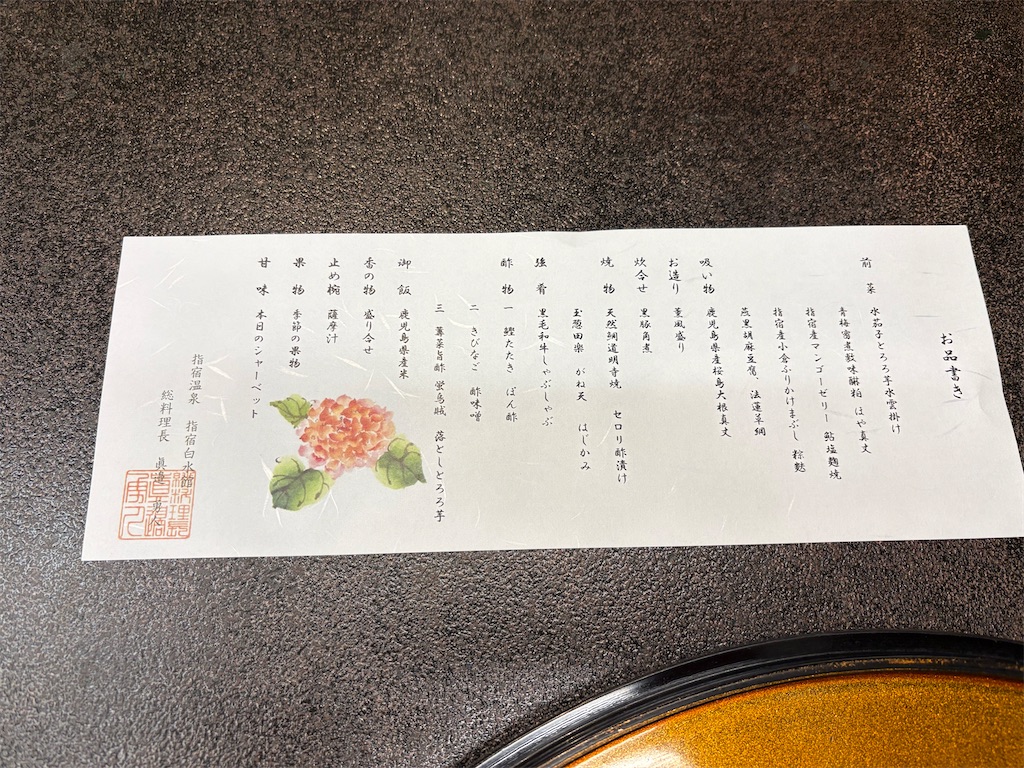 お品書き
前菜 水茄子とろろ芋水雲掛け
青梅蜜煮数味醂粕 ほや真丈
指宿産マンゴーゼリー 鮎塩麹焼
指宿産小倉ふりかけまぶし 粽麩
燕黒胡麻豆腐、法蓮草綱
吸い物 鹿児島県産桜島大根真丈
お造り 薫風盛り
炊合せ 黒豚角煮
焼物 天然鯛道明寺焼 セロリ酢漬け
玉葱田楽 がね天 はじかみ
強肴 黒毛和牛しゃぶしゃぶ
酢物 一 鰹たたき ぽん酢
二 きびなご 酢味噌
三 蓴菜旨酢 蛍烏賊 落としとろろ芋
御飯 鹿児島県産米
香の物 盛り合せ
止め椀 薩摩汁
果物 季節の果物
甘味 本日のシャーベット
指宿温泉 指宿白水館
総料理長